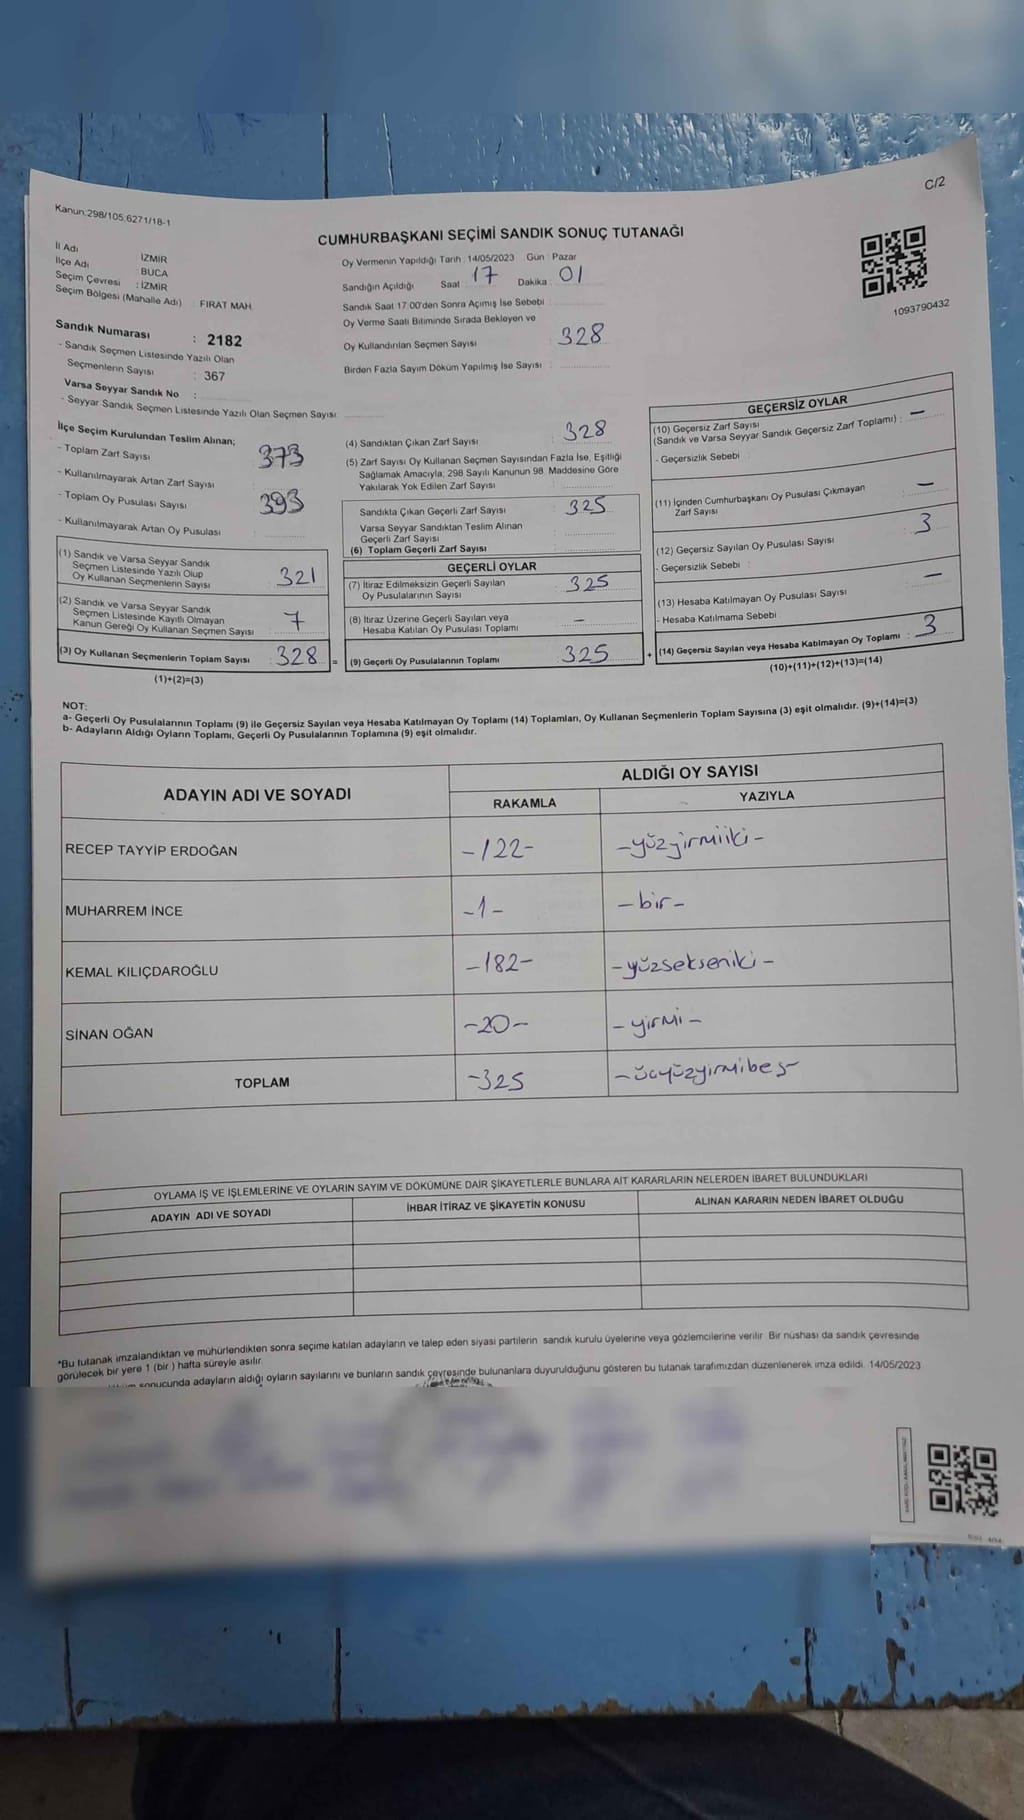 C/2
Kanun:298/105.6271/18-1
CUMHURBAŞKANI SEÇİMİ SANDIK SONUÇ TUTANAĞI
İl Adı : İZMİR
İlçe Adı : BUCA
Seçim Çevresi : İZMİR
Seçim Bölgesi (Mahalle Adı) : FIRAT MAH.
Oy Vermenin Yapıldığı Tarih : 14/05/2023 Gün : Pazar
Sandığın Açıldığı Saat 17 Dakika : 01
Sandık Saat 17:00'den Sonra Açılmış İse Sebebi :
Oy Verme Saati Bitiminde Sırada Bekleyen ve
Oy Kullandırılan Seçmen Sayısı : 328
Birden Fazla Sayım Döküm Yapılmış İse Sayısı :
1093790432
Sandık Numarası : 2182
- Sandık Seçmen Listesinde Yazılı Olan
Seçmenlerin Sayısı : 367
Varsa Seyyar Sandık No :
- Seyyar Sandık Seçmen Listesinde Yazılı Olan Seçmen Sayısı
İlçe Seçim Kurulundan Teslim Alınan;
- Toplam Zarf Sayısı 373
- Kullanılmayarak Artan Zarf Sayısı
- Toplam Oy Pusulası Sayısı 393
- Kullanılmayarak Artan Oy Pusulası
(1) Sandık ve Varsa Seyyar Sandık
Seçmen Listesinde Yazılı Olup
Oy Kullanan Seçmenlerin Sayısı : 321
(2) Sandık ve Varsa Seyyar Sandık
Seçmen Listesinde Kayıtlı Olmayan
Kanun Gereği Oy Kullanan Seçmen Sayısı : 7
(3) Oy Kullanan Seçmenlerin Toplam Sayısı : 328 =
(1)+(2)=(3)
(4) Sandıktan Çıkan Zarf Sayısı : 328
(5) Zarf Sayısı Oy Kullanan Seçmen Sayısından Fazla İse, Eşitliği
Sağlamak Amacıyla; 298 Sayılı Kanunun 98. Maddesine Göre
Yakılarak Yok Edilen Zarf Sayısı :
Sandıkta Çıkan Geçerli Zarf Sayısı : 325
Varsa Seyyar Sandıktan Teslim Alınan
Geçerli Zarf Sayısı :
(6) Toplam Geçerli Zarf Sayısı :
GEÇERLİ OYLAR
(7) İtiraz Edilmeksizin Geçerli Sayılan
Oy Pusulalarının Sayısı : 325
(8) İtiraz Üzerine Geçerli Sayılan veya
Hesaba Katılan Oy Pusulası Toplamı : –
(9) Geçerli Oy Pusulalarının Toplamı : 325 +
GEÇERSİZ OYLAR
(10) Geçersiz Zarf Sayısı
(Sandık ve Varsa Seyyar Sandık Geçersiz Zarf Toplamı) : –
- Geçersizlik Sebebi :
(11) İçinden Cumhurbaşkanı Oy Pusulası Çıkmayan
Zarf Sayısı : –
(12) Geçersiz Sayılan Oy Pusulası Sayısı : 3
- Geçersizlik Sebebi :
(13) Hesaba Katılmayan Oy Pusulası Sayısı : –
- Hesaba Katılmama Sebebi :
(14) Geçersiz Sayılan veya Hesaba Katılmayan Oy Toplamı : 3
(10)+(11)+(12)+(13)=(14)
NOT:
a- Geçerli Oy Pusulalarının Toplamı (9) ile Geçersiz Sayılan veya Hesaba Katılmayan Oy Toplamı (14) Toplamları, Oy Kullanan Seçmenlerin Toplam Sayısına (3) eşit olmalıdır. (9)+(14)=(3)
b- Adayların Aldığı Oyların Toplamı, Geçerli Oy Pusulalarının Toplamına (9) eşit olmalıdır.
ADAYIN ADI VE SOYADI ALDIĞI OY SAYISI
RAKAMLA YAZIYLA
RECEP TAYYİP ERDOĞAN -122- -yüzyirmiiki-
MUHARREM İNCE -1- -bir-
KEMAL KILIÇDAROĞLU -182- -yüzsekseniki-
SİNAN OĞAN -20- -yirmi-
TOPLAM -325 -üçyüzyirmibeş-
OYLAMA İŞ VE İŞLEMLERİNE VE OYLARIN SAYIM VE DÖKÜMÜNE DAİR ŞİKAYETLERLE BUNLARA AİT KARARLARIN NELERDEN İBARET BULUNDUKLARI
ADAYIN ADI VE SOYADI İHBAR İTİRAZ VE ŞİKAYETİN KONUSU ALINAN KARARIN NEDEN İBARET OLDUĞU
*Bu tutanak imzalandıktan ve mühürlendikten sonra seçime katılan adayların ve talep eden siyasi partilerin sandık kurulu üyelerine veya gözlemcilerine verilir. Bir nüshası da sandık çevresinde
görülecek bir yere 1 (bir ) hafta süreyle asılır.
sonucunda adayların aldığı oyların sayılarını ve bunların sandık çevresinde bulunanlara duyurulduğunu gösteren bu tutanak tarafımızdan düzenlenerek imza edildi. 14/05/2023